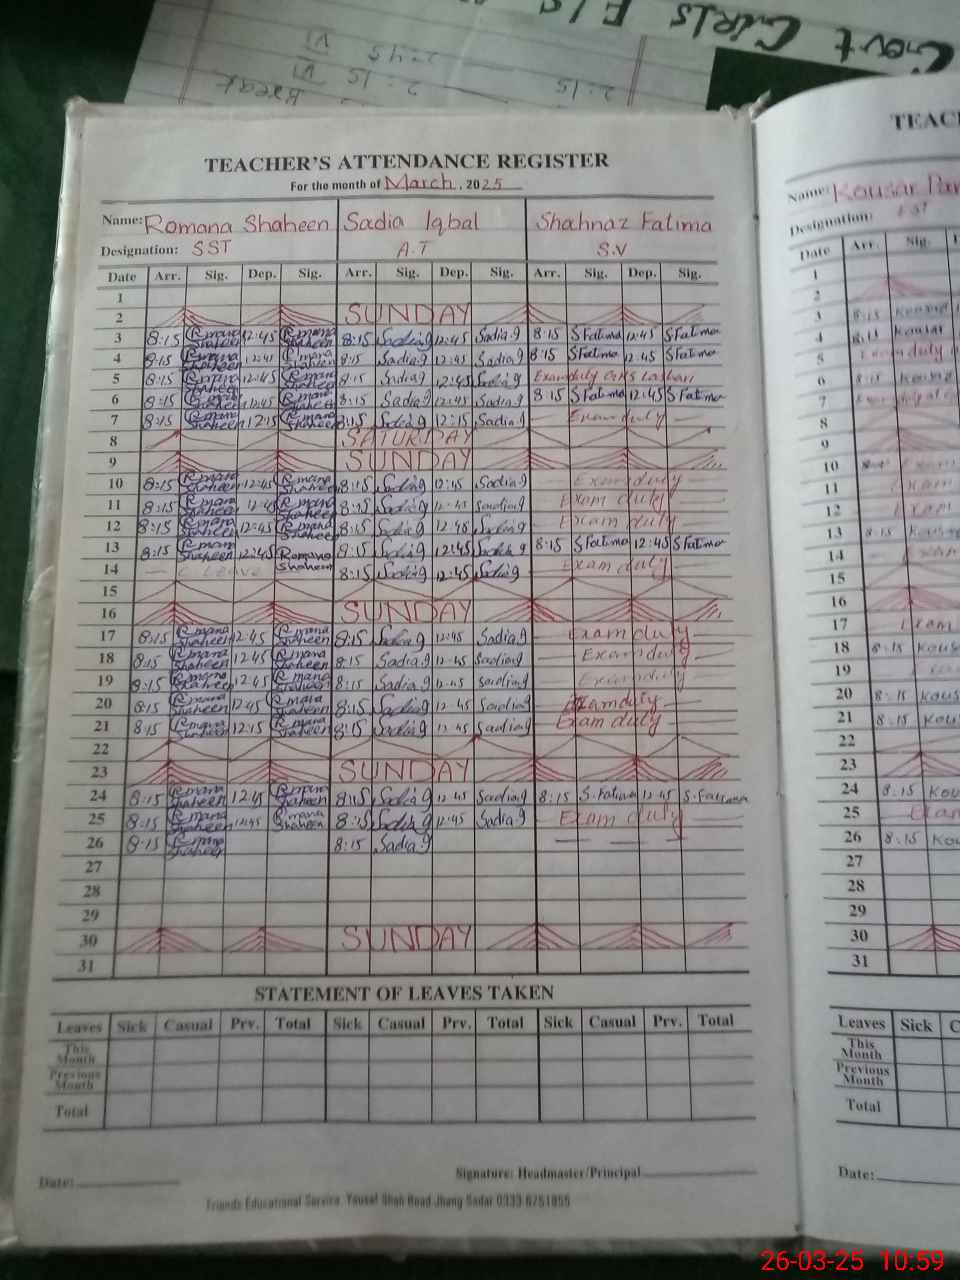 Govt GIRLS E/S
2:45 VI
2:15 VI
2:15 Break
TEACHER'S ATTENDANCE REGISTER
For the month of March, 2025
Name: Romana Shaheen Sadia Iqbal Shahnaz Fatima
Designation: SST A.T S.V
Date Arr. Sig. Dep. Sig. Arr. Sig. Dep. Sig. Arr. Sig. Dep. Sig.
1
2 SUNDAY
3 8:15 Romana Shaheen 12:45 Romana Shaheen 8:15 Sadia 9 12:45 Sadia 9 8:15 S Fatima 12:45 S Fatima
4 8:15 Romana Shaheen 12:45 Romana Shaheen 8:15 Sadia 9 12:45 Sadia 9 8:15 S Fatima 12:45 S Fatima
5 8:15 Romana Shaheen 12:45 Romana Shaheen 8:15 Sadia 9 12:45 Sadia 9 Exam duty
6 8:15 Romana Shaheen 12:45 Romana Shaheen 8:15 Sadia 9 12:45 Sadia 9 8:15 S Fatima 12:45 S Fatima
7 8:15 Romana Shaheen 12:15 Romana Shaheen 8:15 Sadia 9 12:15 Sadia 9 Exam duty
8 SATURDAY
9 SUNDAY
10 8:15 Romana Shaheen 12:45 Romana Shaheen 8:15 Sadia 9 12:45 Sadia 9 Exam duty
11 8:15 Romana Shaheen 12:45 Romana Shaheen 8:15 Sadia 9 12:45 Sadia 9 Exam duty
12 8:15 Romana Shaheen 12:45 Romana Shaheen 8:15 Sadia 9 12:45 Sadia 9 Exam duty
13 8:15 Romana Shaheen 12:45 Romana Shaheen 8:15 Sadia 9 12:45 Sadia 9 8:15 S Fatima 12:45 S Fatima
14 C Leave 8:15 Sadia 9 12:45 Sadia 9 Exam duty
15
16 SUNDAY
17 8:15 Romana Shaheen 12:45 Romana Shaheen 8:15 Sadia 9 12:45 Sadia 9 Exam duty
18 8:15 Romana Shaheen 12:45 Romana Shaheen 8:15 Sadia 9 12:45 Sadia 9 Exam duty
19 8:15 Romana Shaheen 12:45 Romana Shaheen 8:15 Sadia 9 12:45 Sadia 9 Exam duty
20 8:15 Romana Shaheen 12:45 Romana Shaheen 8:15 Sadia 9 12:45 Sadia 9 Exam duty
21 8:15 Romana Shaheen 12:15 Romana Shaheen 8:15 Sadia 9 12:45 Sadia 9 Exam duty
22
23 SUNDAY
24 8:15 Romana Shaheen 12:45 Romana Shaheen 8:15 Sadia 9 12:45 Sadia 9 8:15 S. Fatima 12:45 S. Fatima
25 8:15 Romana Shaheen 12:45 Romana Shaheen 8:15 Sadia 9 12:45 Sadia 9 Exam duty
26 8:15 Romana Shaheen 8:15 Sadia 9
27
28
29
30 SUNDAY
31
STATEMENT OF LEAVES TAKEN
Leaves Sick Casual Prv. Total Sick Casual Prv. Total Sick Casual Prv. Total
This Month
Previous Month
Total
Signature: Headmaster/Principal
Date:
Friends Educational Service, Yousaf Shah Road Jhang Sadar 0333 6751855
TEAC
Name: Kousar Par
Designation: EST
Date Arr. Sig.
1
2
3 8:15 Kousar
4 8:15 Kousar
5 Exam duty
6 8:15 Kousar
7 Exam duty
8
9
10 Exam
11 Exam
12 Exam
13 8:15 Kousar
14 Exam
15
16
17 Exam
18 8:15 Kous
19
20 8:15 Kous
21 8:15 Kou
22
23
24 8:15 Kou
25 Exam
26 8:15 Kou
27
28
29
30
31
Leaves Sick C
This Month
Previous Month
Total
Date:
26-03-25 10:59